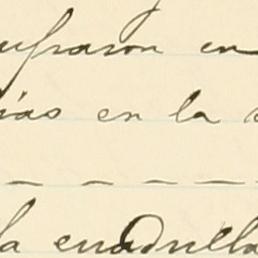 ufraron en
ias en la
— — — — —
la cuadrilla